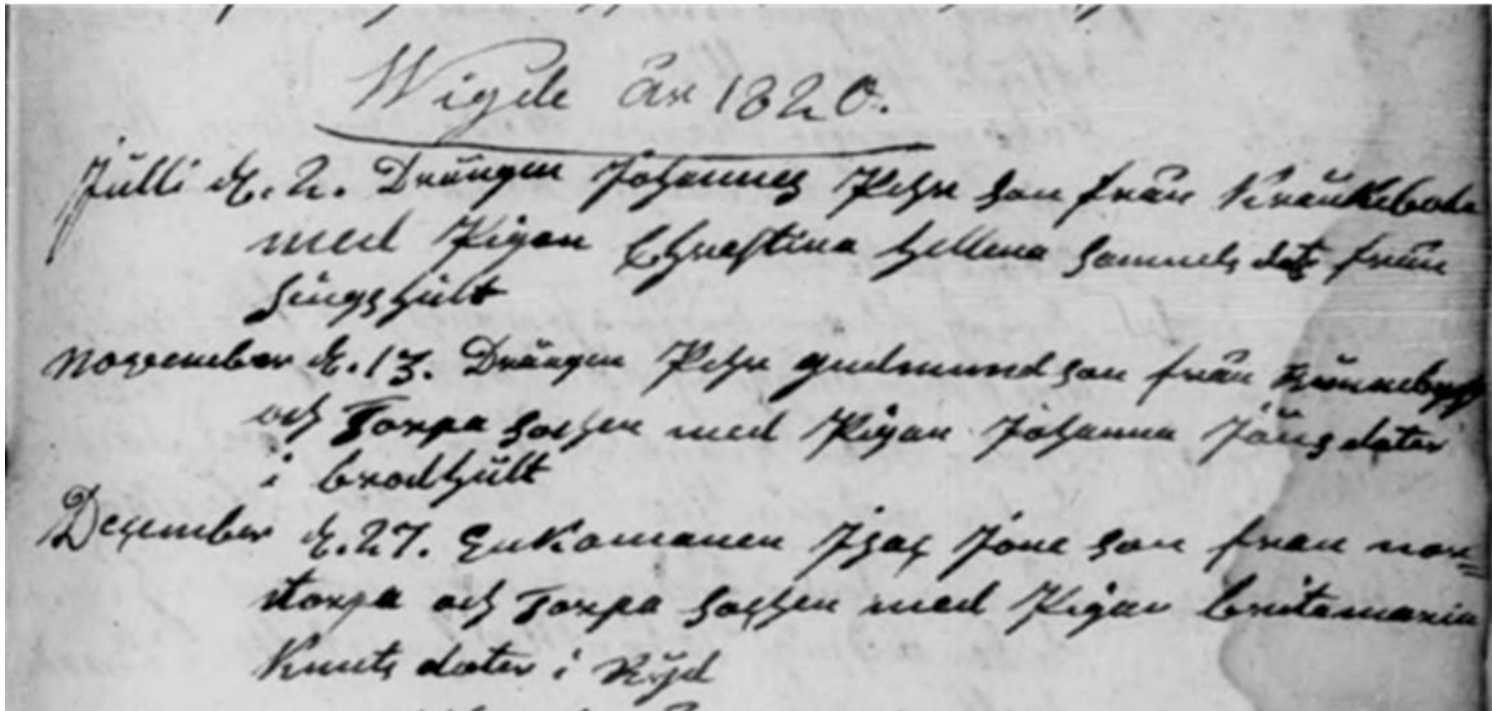 Wigde år 1820.
Julli d. 2. Drängen Johannes Pehr son från
med Pigan Chrestina Hellena Samuels datr från
Singshult
November d. 13. Drängen Pehr Gudmundson från
och Torpa Sochen med Pigan Johanna Jöns dater
i brodhult
December d. 27. Enkomanen Isac Jone son fran nor=
storpa och Torpa Sochen med Pigan britamaria
Knuts dater i Ryd